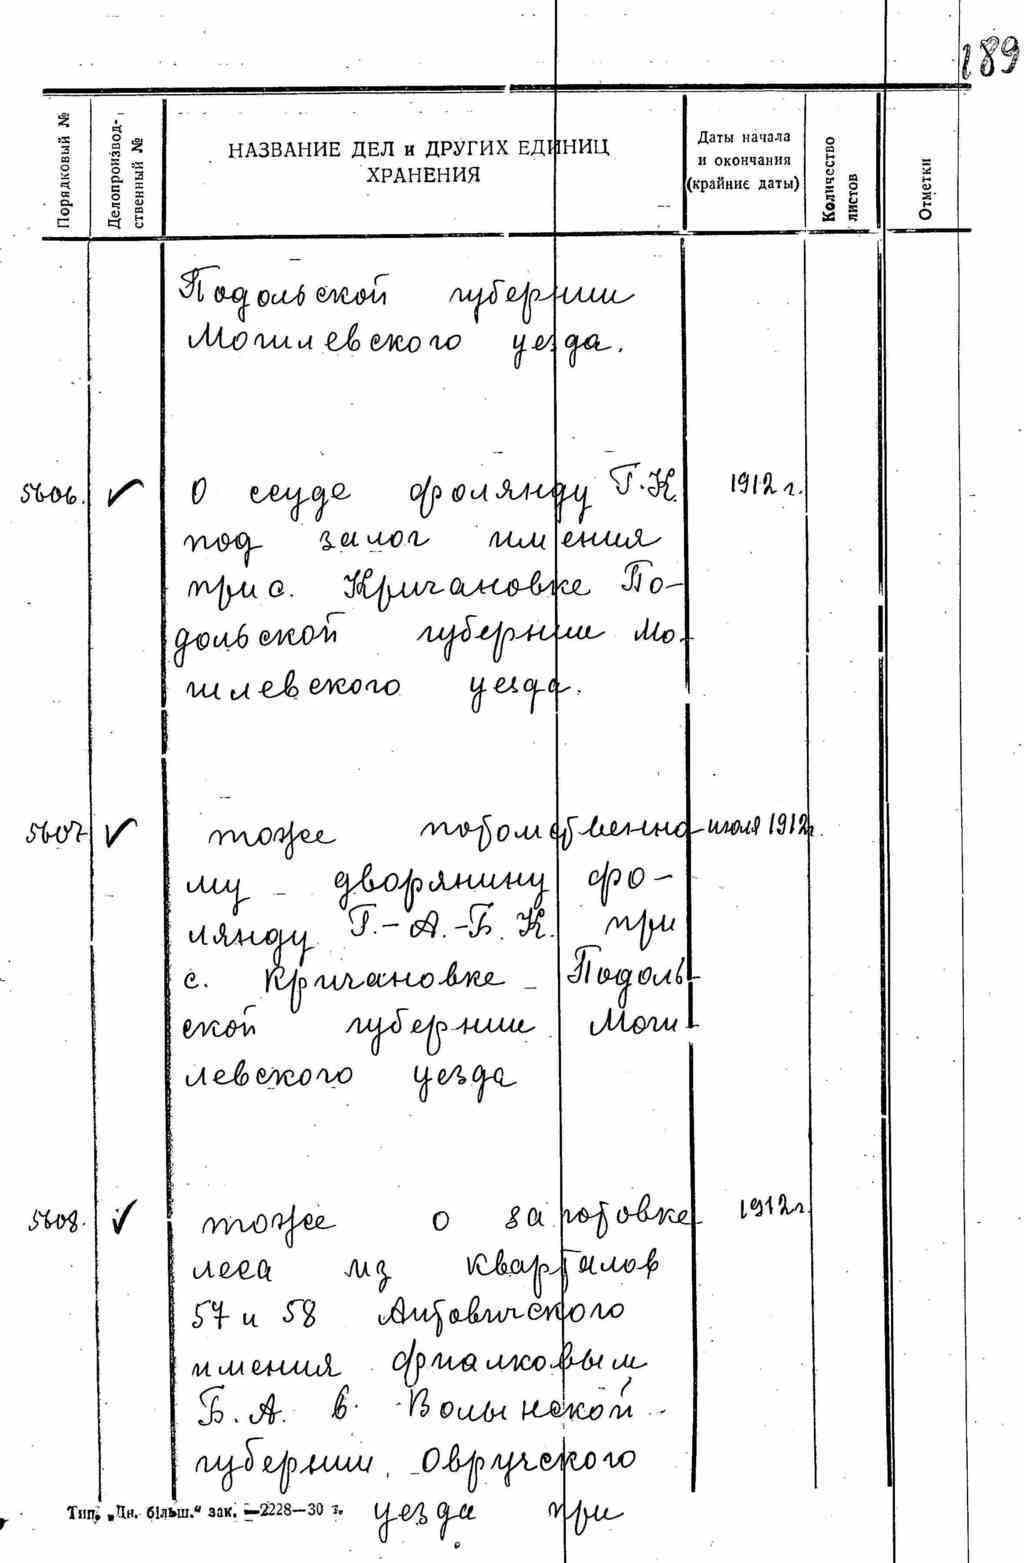 189
Порядковый №
Делопроизвод-
ственный №
НАЗВАНИЕ ДЕЛ и ДРУГИХ ЕДИНИЦ
ХРАНЕНИЯ
Даты начала
и окончания
(крайние даты)
Количество
листов
Отметки
Подольской губернии
Могилевского уезда.
5606. ✓ О ссуде Фолянду Г.К. 1912 г.
под залог имения
при с. Кричановке По-
дольской губернии Мо-
гилевского уезда.
5607 ✓ тоже потомственно- июля 1912г.
му дворянину Фо-
лянду Г.-А.-Б. К. при
с. Кричановке Подоль-
ской губернии Моги-
левского уезда
5608. ✓ тоже о заготовке 1912г.
леса из кварталов
57 и 58
имения Фиалковым
Б. А. в Волынской
губернии, Овручского
уезда при
Тип. „Дн. більш.“ зак. —2228—30 т.